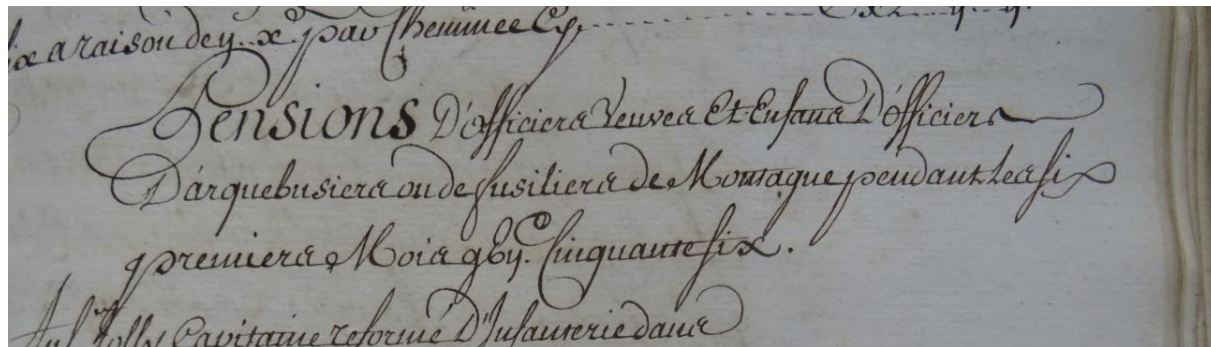 a raison de ij. x. par Cheminée Cy
Pensions D'officiers Veuves Et Enfans D'officiers
D'arquebusiers ou de fusiliers de Montagne pendant Les six
premiers Mois Cinquante six.
Au Sr. Jolly Capitaine reformé D'Infanterie dans